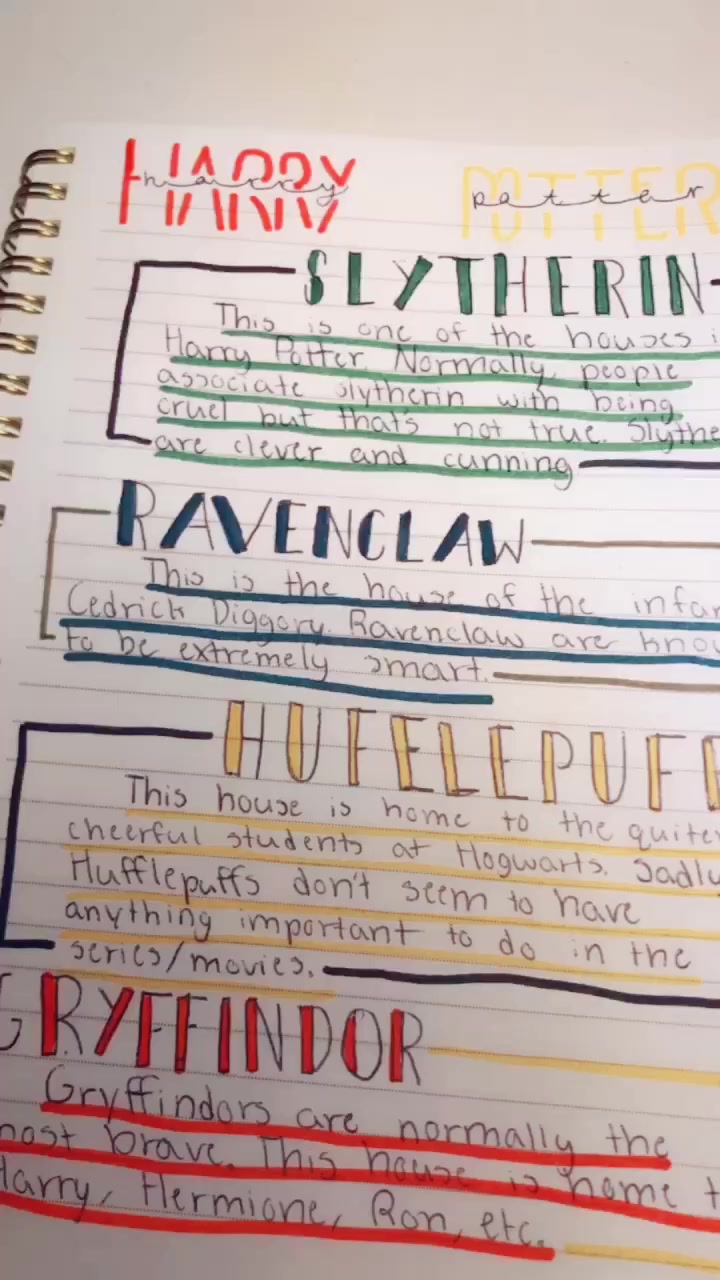 HARRY harry POTTER potter
SLYTHERIN
This is one of the houses i
Harry Potter. Normally, people
associate slytherin with being
cruel but that's not true. Slythe
are clever and cunning
RAVENCLAW
This is the house of the infa
Cedrick Diggory. Ravenclaw are kno
to be extremely smart.
HUFELEPUFF
This house is home to the quiter
cheerful students at Hogwarts. Sadly
Hufflepuffs don't seem to have
anything important to do in the
series/movies.
GRYFFINDOR
Gryffindors are normally the
most brave. This house is home t
Harry, Hermione, Ron, etc.